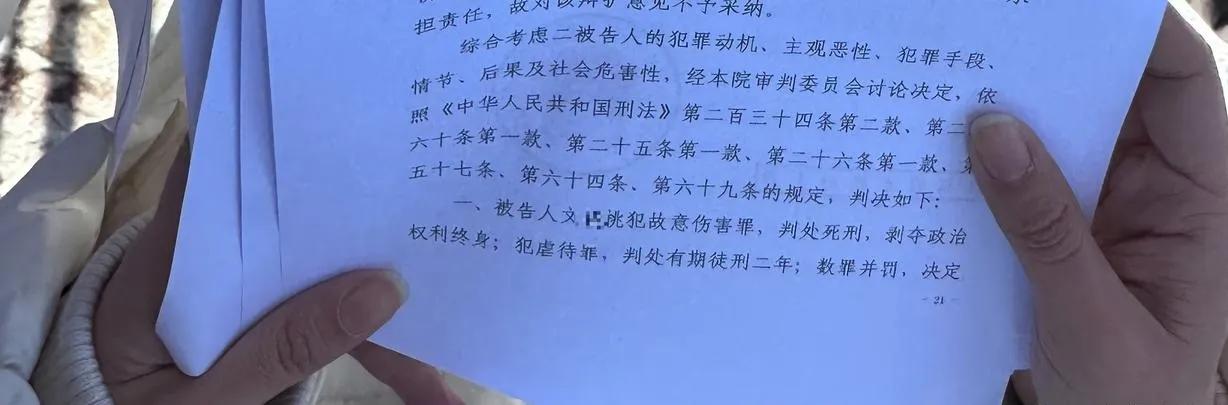 担责任，故对该辩护意见不予采纳。
综合考虑二被告人的犯罪动机、主观恶性、犯罪手段、
情节、后果及社会危害性，经本院审判委员会讨论决定，依
照《中华人民共和国刑法》第二百三十四条第二款、第二
六十条第一款、第二十五条第一款、第二十六条第一款、第
五十七条、第六十四条、第六十九条的规定，判决如下：
一、被告人文 洮犯故意伤害罪，判处死刑，剥夺政治
权利终身；犯虐待罪，判处有期徒刑二年；数罪并罚，决定
- 21 -